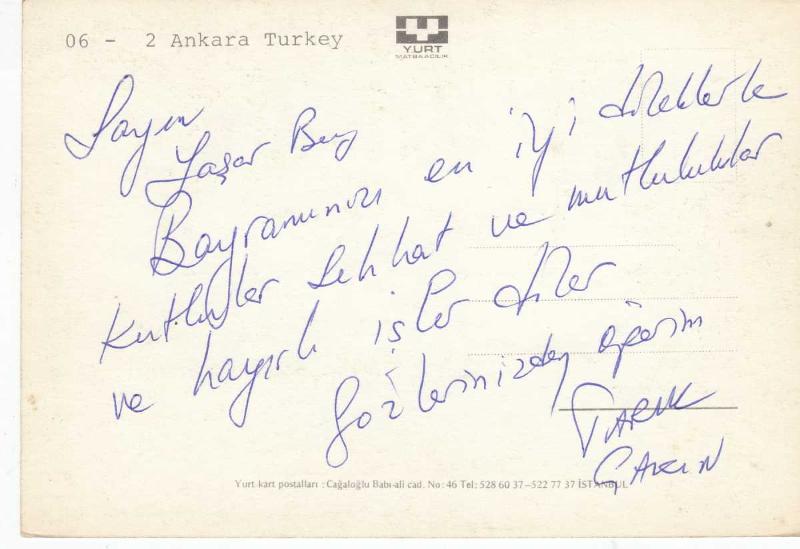 06 - 2 Ankara Turkey
YURT
MATBAACILIK
Sayın
Yaşar Bey
Bayramınızı en iyi dileklerle
kutlular sıhhat ve mutluluklar
ve hayırlı işler diler
Gözlerinizden öperim
TARIK
Yurt kart postalları : Cağaloğlu Babı-ali cad. No: 46 Tel: 528 60 37-522 77 37 İSTANBUL